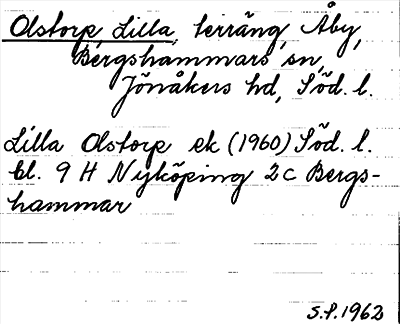 Olstorp Lilla, terräng, Åby,
Bergshammars sn,
Jönåkers hd, Söd. l.
Lilla Olstorp ek (1960) Söd. l.
bl. 9 H Nyköping 2c Bergs-
hammar
S.P. 1962